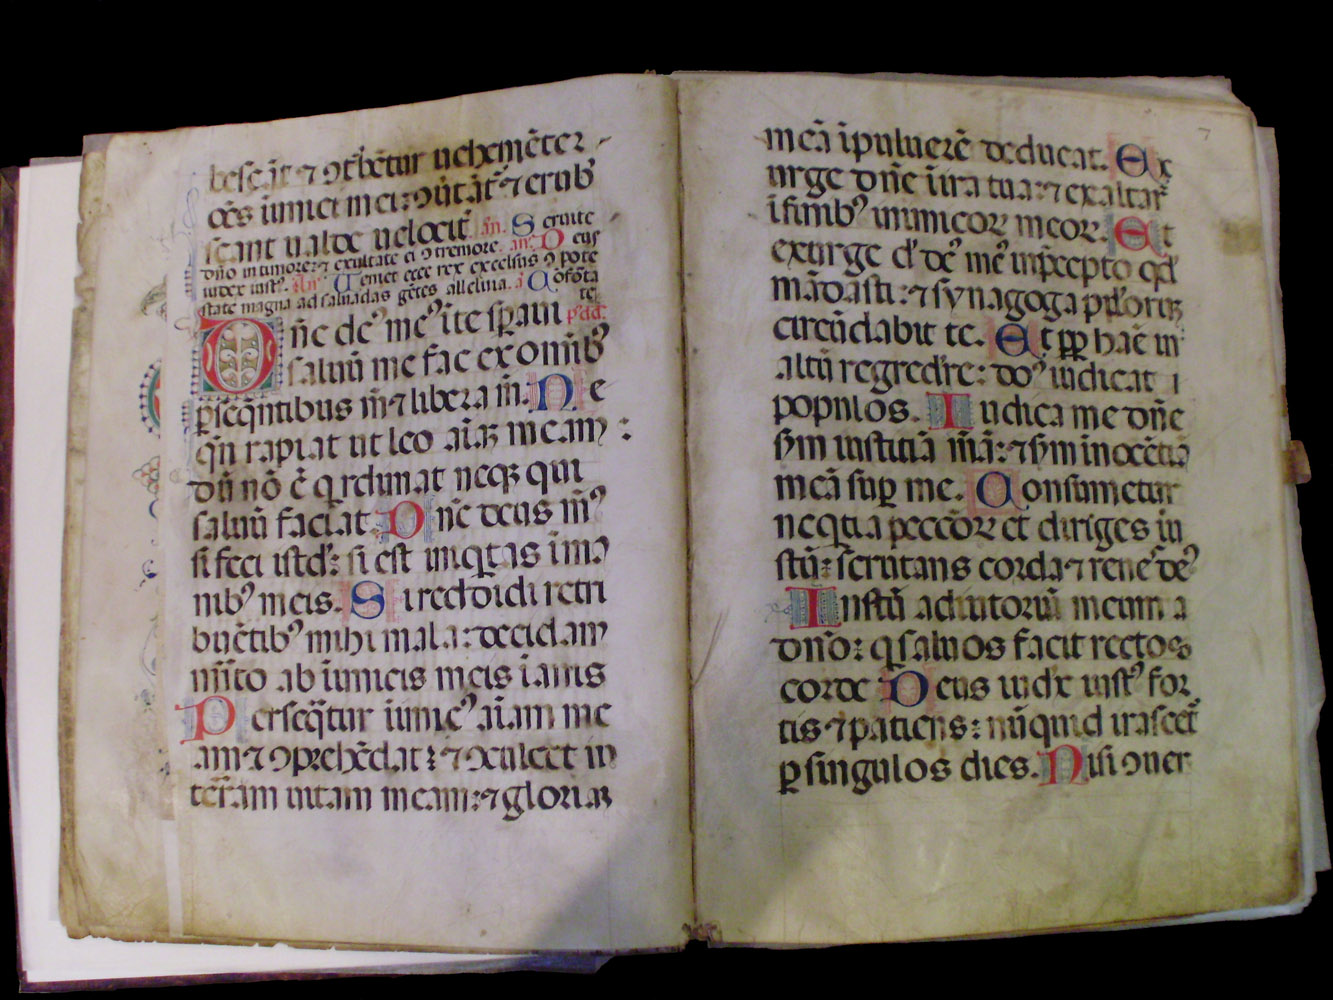 besc̄āt ⁊ ꝯt᷑bēt᷑ur uehemēter
oēs inimici mei: ꝯūtāt᷑ ⁊ erub
scant ualde uelocit᷑ añ. Seruite
dn̄o in timore: ⁊ exultate ei ꝯ tremore. añ. Deus
iudex iust᷒. añ. Tenet ecce rex excelsus ꝯ pote
state magna ad saluādas gētes alleluia. a Cōfōta
te
Dn̄e de᷒ me᷒ ī te sꝑaui ps. dd.
saluū me fac ex omīb᷒
ꝑseq̄ntibus m̄ ⁊ libera m̄. Ne
qn̄ rapiat ut leo aīaꝫ meam:
dū nō ē q redimat neqꝫ qui
saluū faciat Dn̄e deus m᷒
si feci istd᷑: si est iniq̄tas ī ma
nib᷒ meis. Si reddidi retri
buētib᷒ mihi mala: decidam
m̄ito ab inimicis meis inanis
Perseq̄tur inimic᷒ aīam me
am ⁊ ꝯprehēdat: ⁊ ꝯculcet in
terram uitam meam: ⁊ gloriaꝫ
meā ī puluerē deducat. Ex
urge dn̄e ī ira tua: ⁊ exaltar᷑
ī finib᷒ inimicoꝝ meoꝝ. Et
exurge d᷑ de᷒ me᷒ in p̄cepto qd᷑
mādasti: ⁊ synagoga pplorū
circūdabit te. Et ꝓp hāc in
altū regred᷑re: do᷒ iudicat
populos. Iudica me dn̄e
s̄m iustitiā mēā: ⁊ s̄m inocētiā
meā suꝑ me. Consumetur
neqtia peccōꝝ et diriges iu
stū: scrutans corda ⁊ rene᷒ de᷒
Iustū adiutoriū meum a
dn̄o: q saluos facit rectos
corde Deus iudex iust᷒ for
tis ⁊ patiens: nūquid irascet᷑
ꝑ singulos dies. Nisi ꝯuer
7